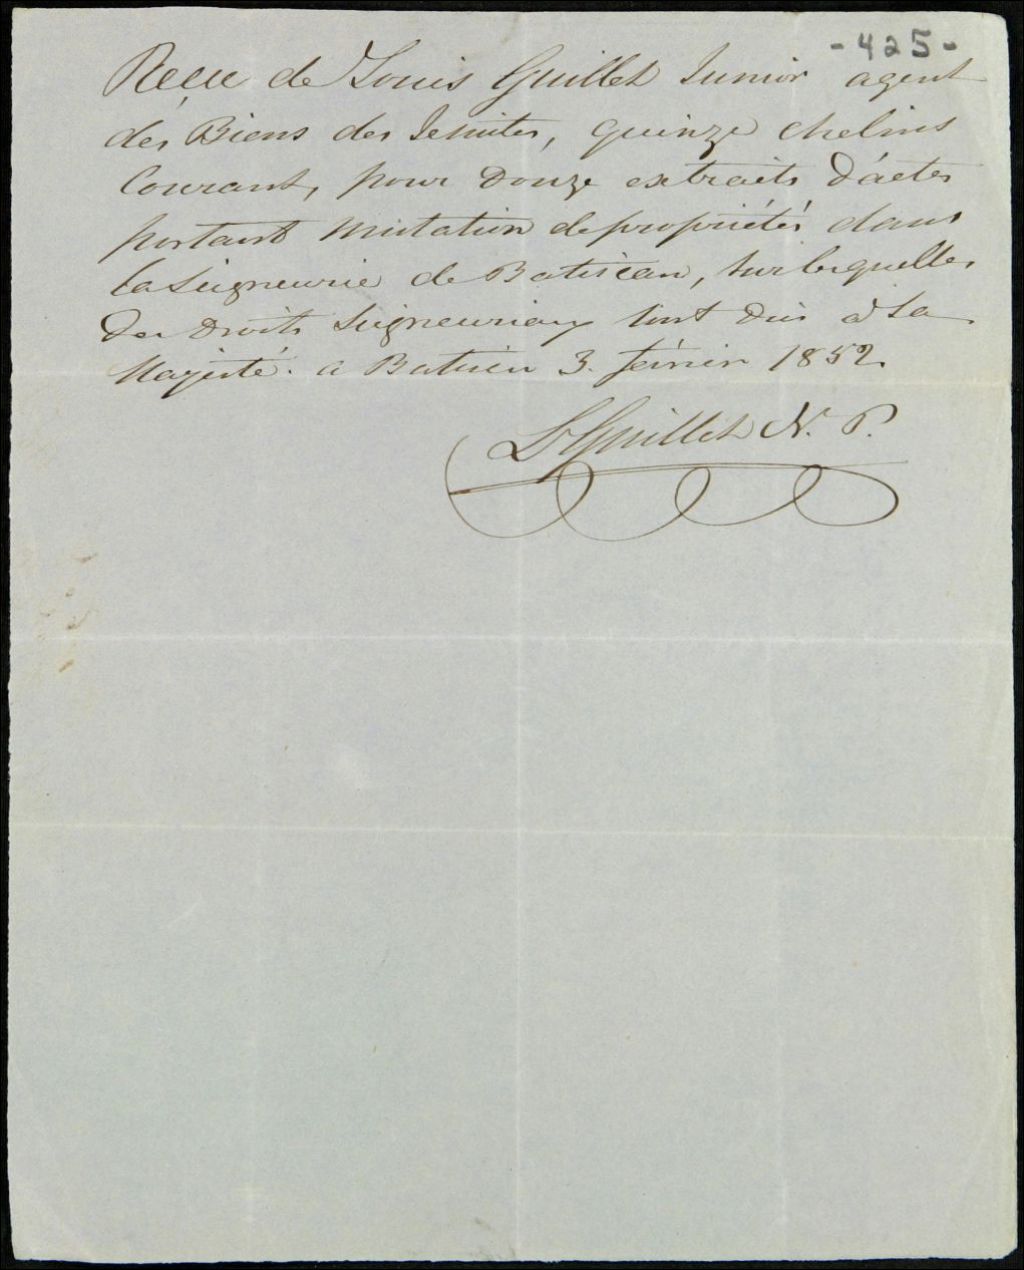 - 425 -
Reçu de Louis Guillet Junior agent
des Biens des Jesuites, quinze chelins
Courant, pour Douze extraits d'actes
portant mutation de propriétés dans
la Seigneurie de Batiscan, sur lesquelles
des Droits Seigneuriaux sont dus à Sa
Majesté. a Batiscan 3. février 1852
Ls Guillet N. P.